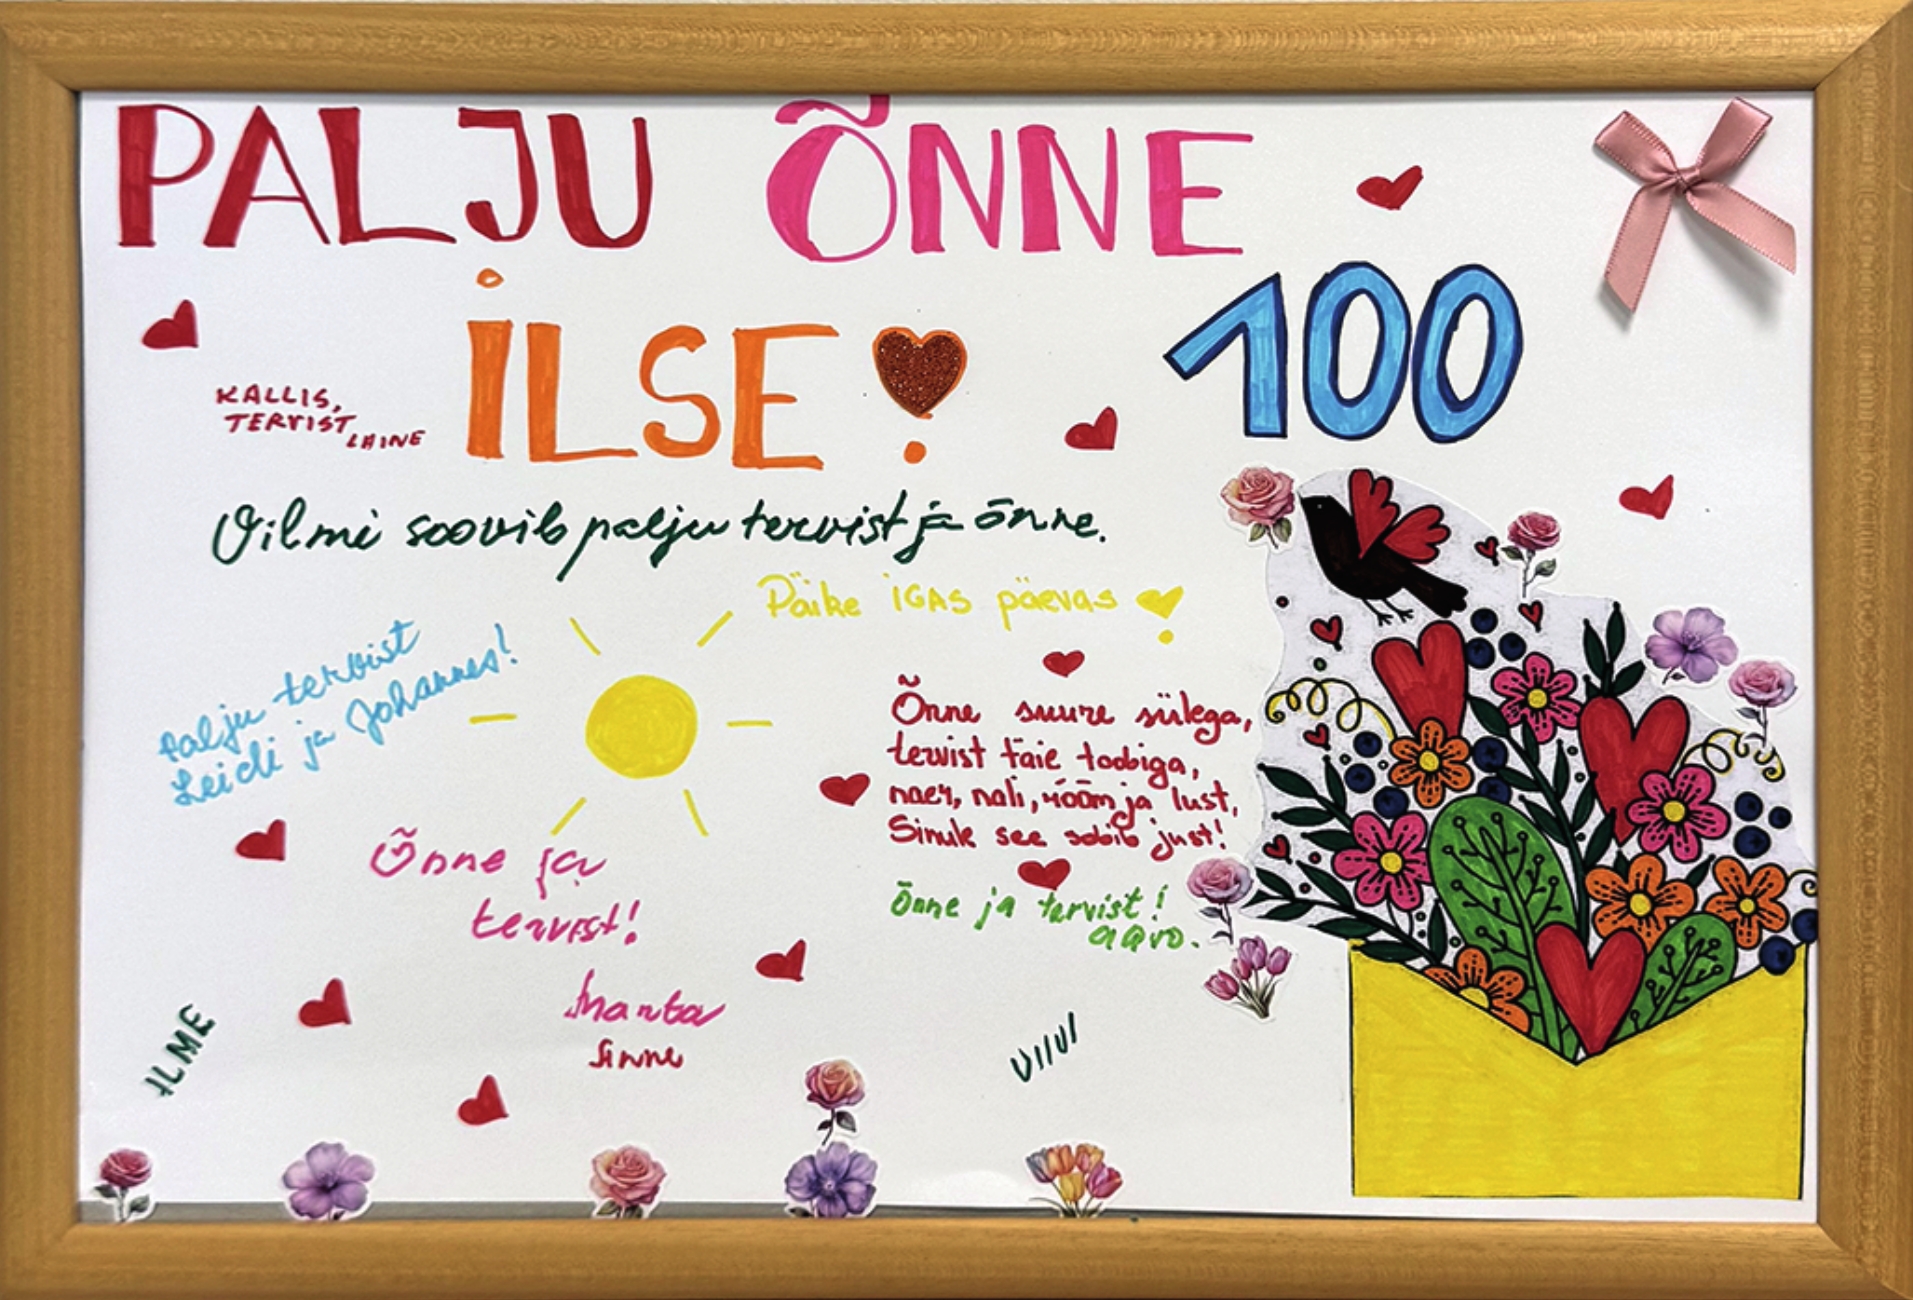 PALJU ÕNNE
ILSE!
100
KALLIS,
TERVIST
LAINE
Vilmi soovib palju tervist ja õnne.
Päike iGAS päevas!
Palju tervist
Leidi ja Johannes!
Õnne suure sülega,
tervist täie toobiga,
naer, nali, rõõm ja lust,
Sinule see sobib just!
Õnne ja tervist!
aavo.
Õnne ja
tervist!
Manta
Anne
ILME
VIIVI